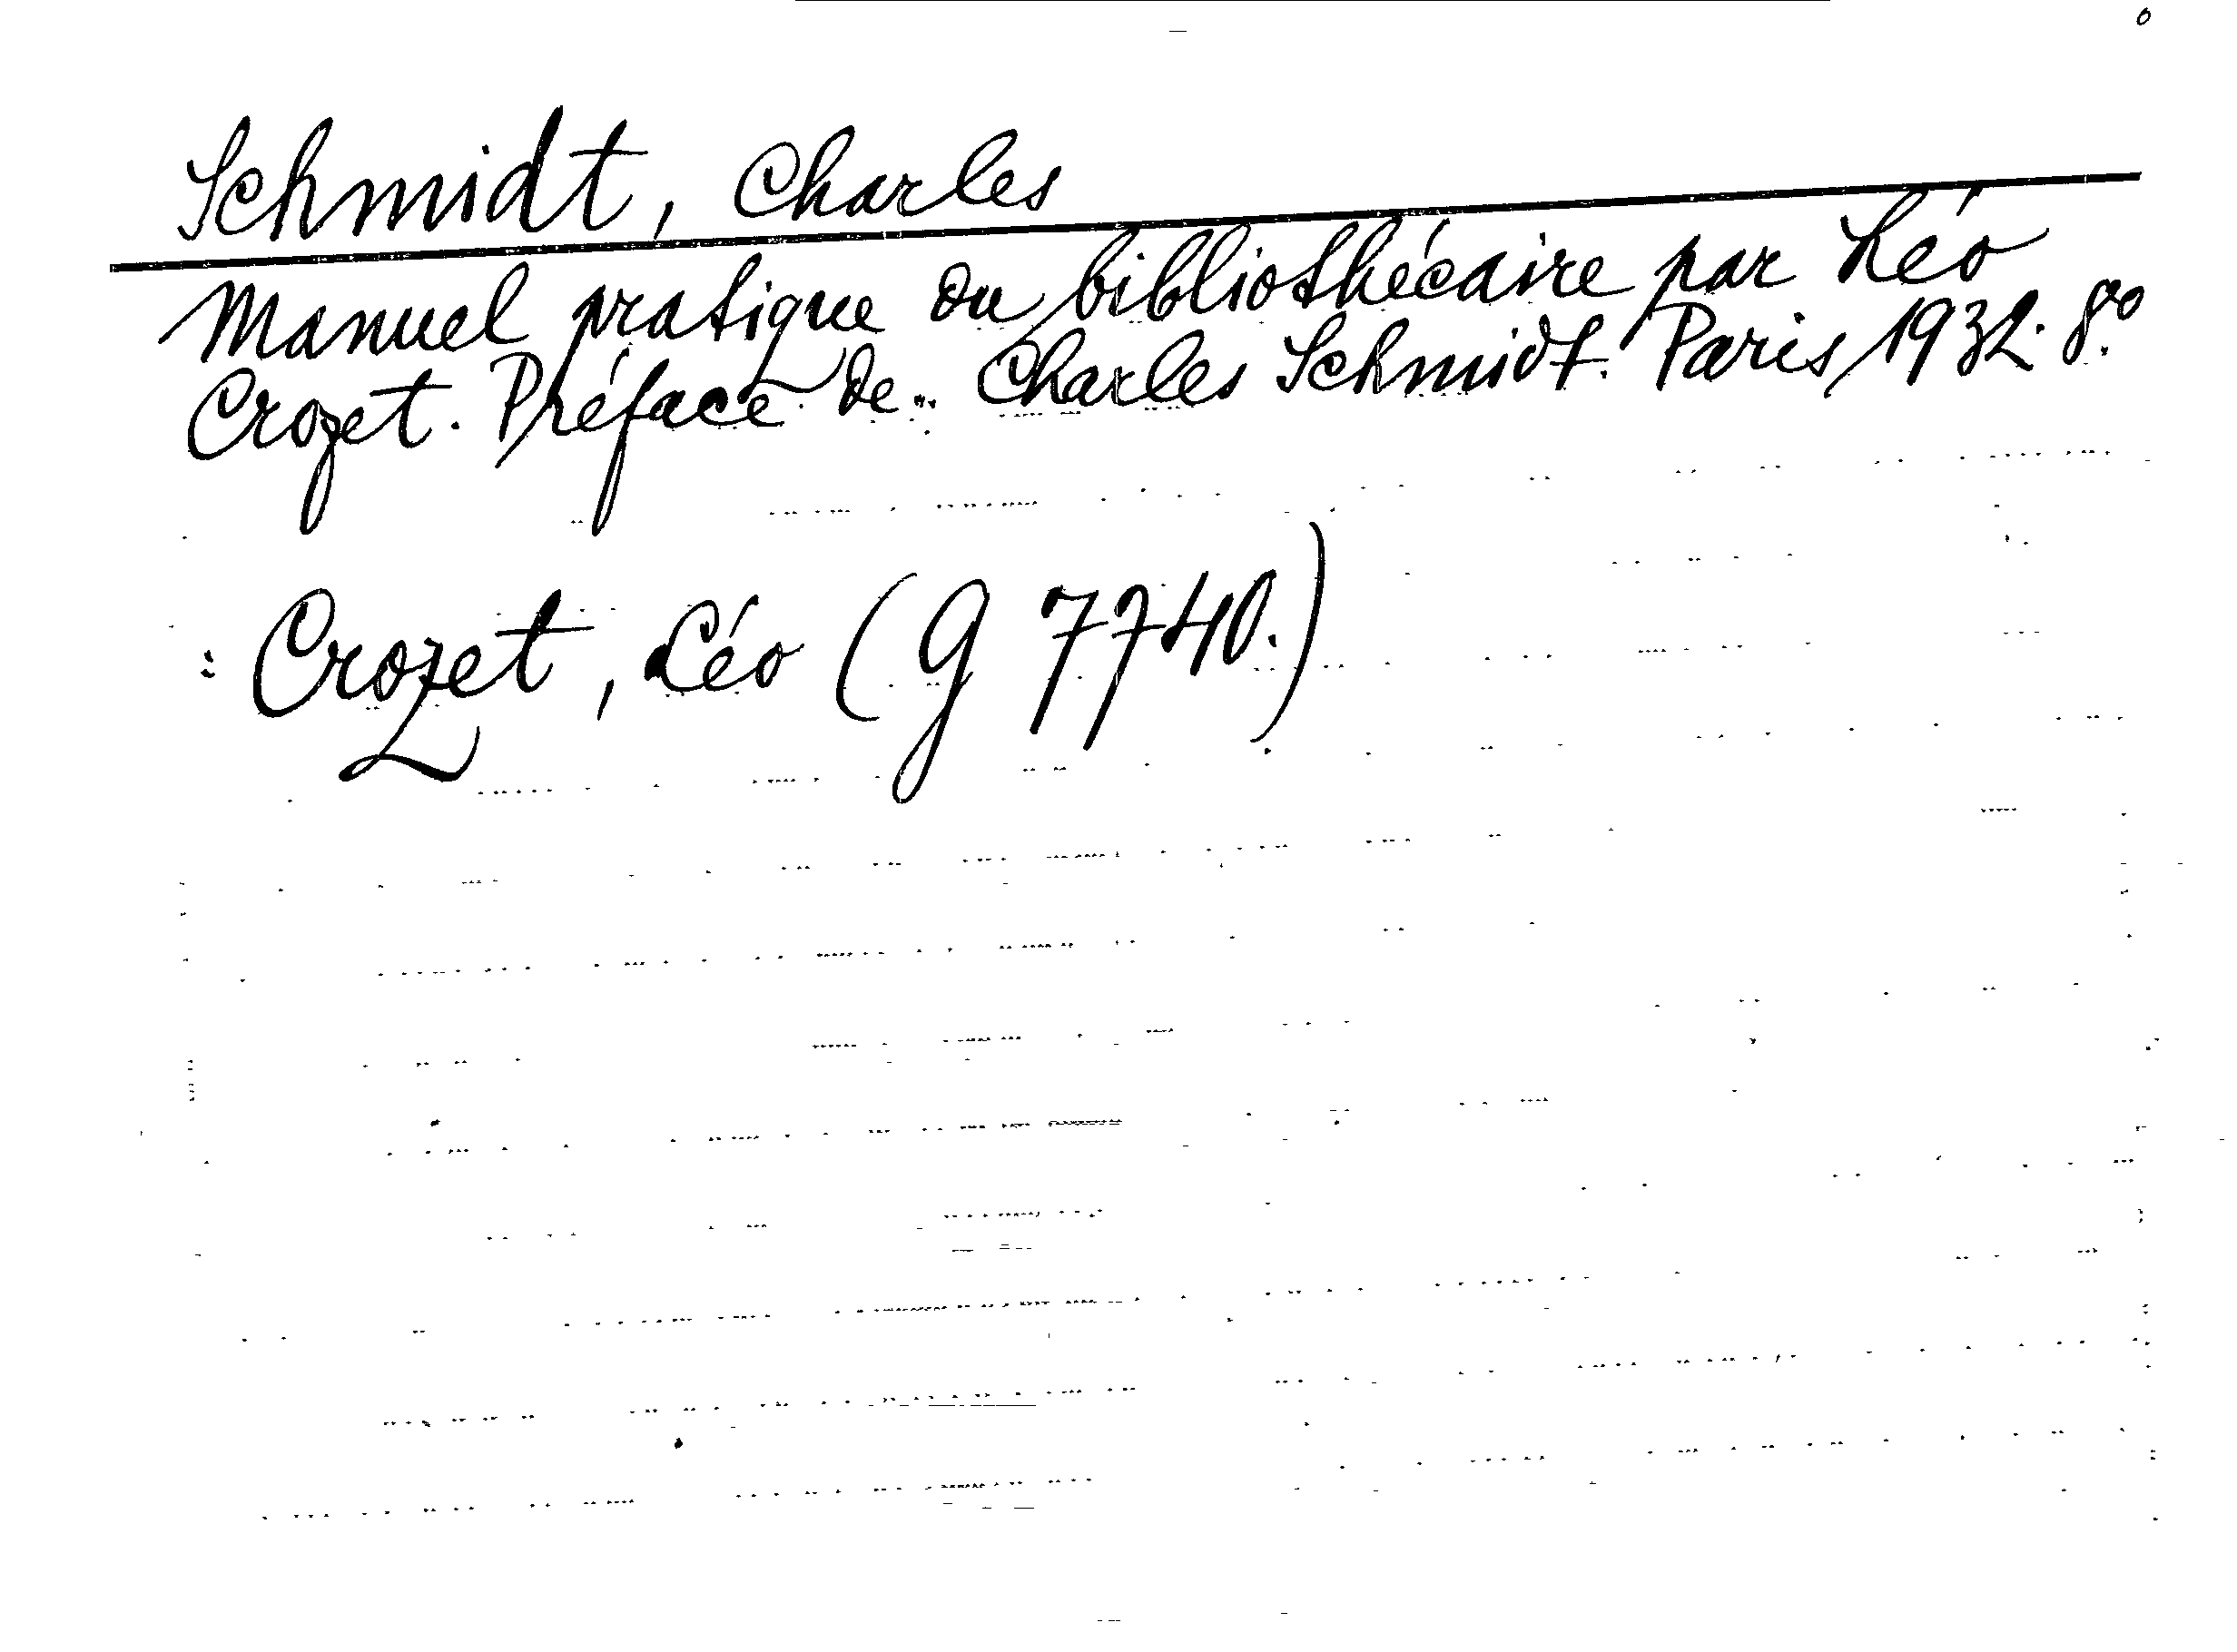 Schmidt, Charles
Manuel pratique du bibliothécaire par Léo
Crozet. Préface de.. Charles Schmidt. Paris, 1932. 8º.
: Crozet, Léo (G 7740.)